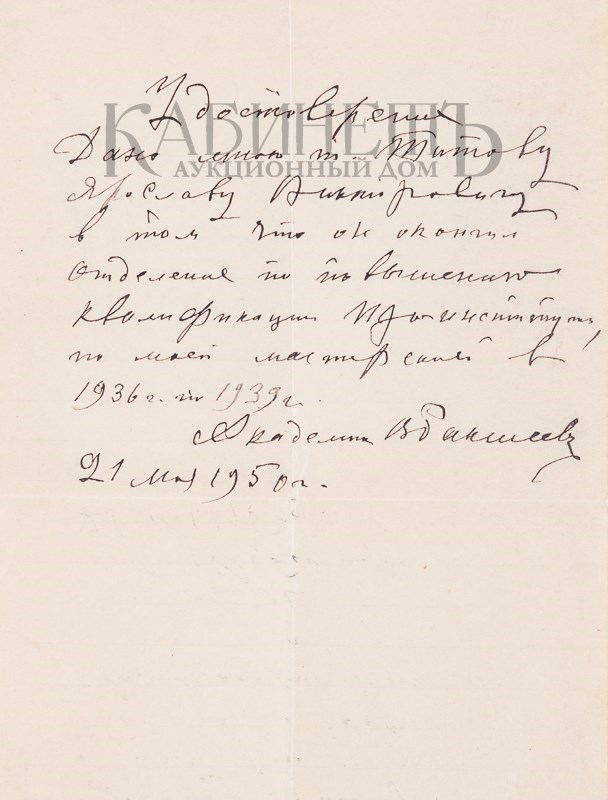 Удостоверение
КАБИНЕТЪ
АУКЦИОННЫЙ ДОМ
Дано мною т. Титову
Ярославу Викторовичу
в том что он окончил
отделение по повышению
квалификации
по моей мастерской в
1936 г. по 1939 г.
Академик В Бакшеев
21 мая 1950 г.